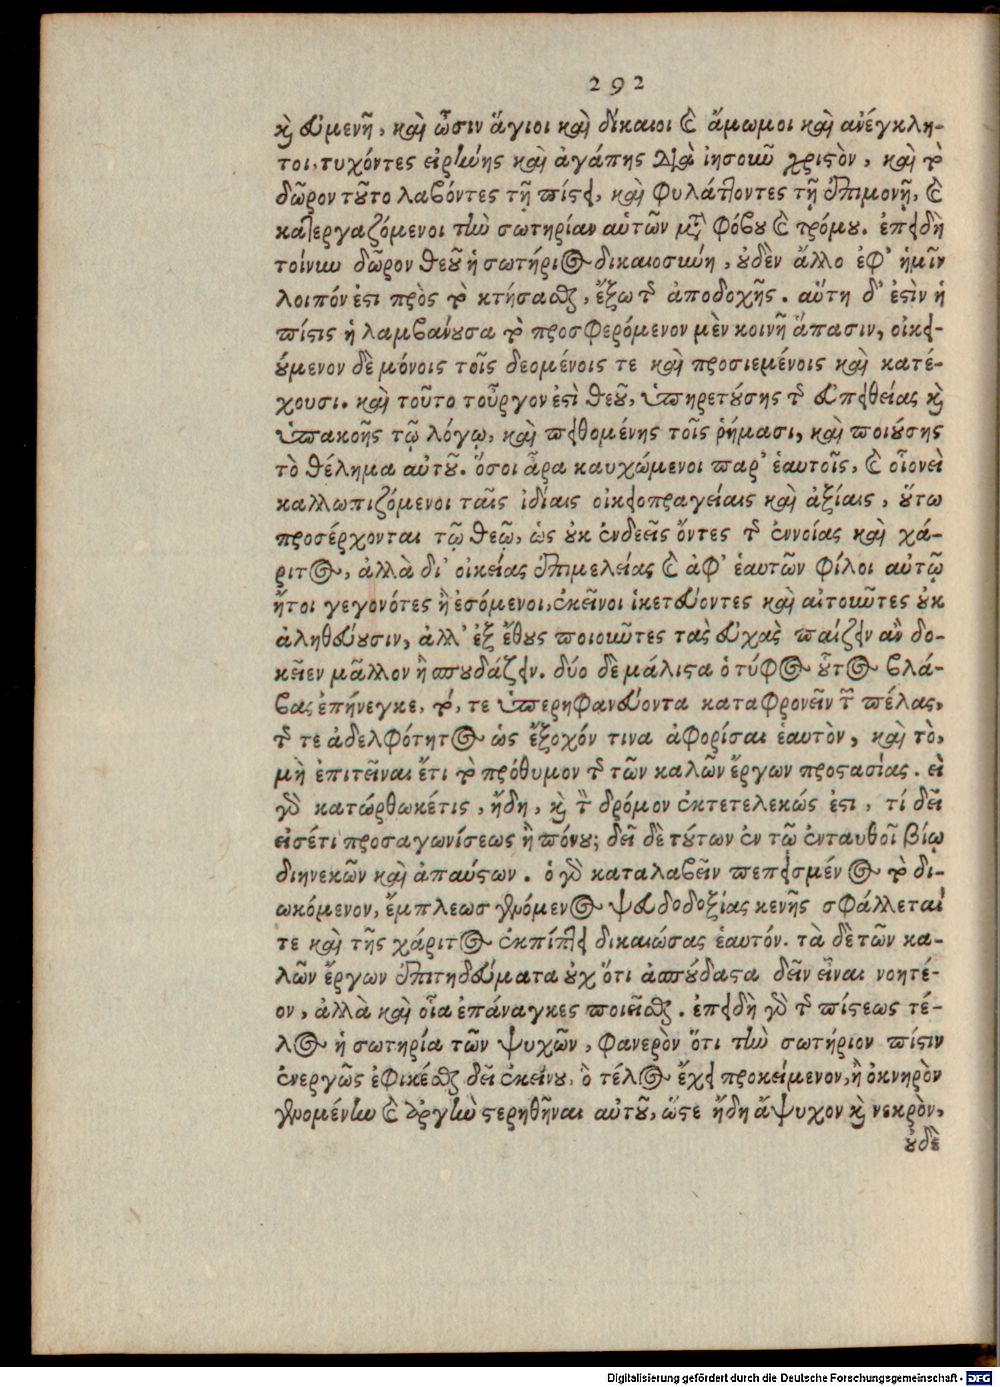 292
καὶ εὐμενῆ, καὶ ὦσιν ἅγιοι καὶ δίκαιοι καὶ ἄμωμοι καὶ ἀνέγκλη-
τοι, τυχόντες εἰρήνης καὶ ἀγάπης διὰ ἰησοῦν χριστὸν, καὶ τὸ
δῶρον τοῦτο λαβόντες τῇ πίστει, καὶ φυλάττοντες τῇ ἐπιμονῇ, καὶ
κατεργαζόμενοι τὴν σωτηρίαν αὑτῶν μετὰ φόβου καὶ τρόμου. ἐπειδὴ
τοίνυν δῶρον θεοῦ ἡ σωτήριος δικαιοσύνη, οὐδὲν ἄλλο ἐφ' ἡμῖν
λοιπόν ἐστι πρὸς τὸ κτήσασθαι, ἔξω τῆς ἀποδοχῆς. αὕτη δ' ἐστὶν ἡ
πίστις ἡ λαμβάνουσα τὸ προσφερόμενον μὲν κοινῇ ἅπασιν, οἰκει-
ούμενον δὲ μόνοις τοῖς δεομένοις τε καὶ προσιεμένοις καὶ κατέ-
χουσι. καὶ τοῦτο τοὖργον ἐστὶ θεοῦ, ὑπηρετούσης τῆς εὐπειθείας καὶ
ὑπακοῆς τῷ λόγῳ, καὶ πειθομένης τοῖς ῥήμασι, καὶ ποιούσης
τὸ θέλημα αὐτοῦ. ὅσοι ἆρα καυχώμενοι παρ' ἑαυτοῖς, καὶ οἱονεὶ
καλλωπιζόμενοι ταῖς ἰδίαις οἰκειοπραγείαις καὶ ἀξίαις, οὕτω
προσέρχονται τῷ θεῷ, ὡς οὐκ ἐνδεεῖς ὄντες τῆς ἐννοίας καὶ χά-
ριτος, ἀλλὰ δι' οἰκείας ἐπιμελείας καὶ ἀφ' ἑαυτῶν φίλοι αὐτῷ
ἤτοι γεγονότες ἢ ἐσόμενοι, ἐκεῖνοι ἱκετεύοντες καὶ αἰτοιοῦτες οὐκ
ἀληθεύουσιν, ἀλλ' ἐξ ἔθους ποιοιοῦτες τὰς εὐχὰς παίζειν ἂν δο-
κεῖεν μᾶλλον ἢ σπουδάζειν. δύο δὲ μάλιστα ὁ τύφος οὗτος βλά-
βας ἐπήνεγκε, τό, τε ὑπερηφανεύοντα καταφρονεῖν τῶν πέλας,
τῆς τε ἀδελφότητος ὡς ἔξοχόν τινα ἀφορίσαι ἑαυτὸν, καὶ τὸ,
μὴ ἐπιτεῖναι ἔτι τὸ πρόθυμον τῆς τῶν καλῶν ἔργων προστασίας. εἰ
γὰρ κατώρθωκέ τις, ἤδη, καὶ τὸν δρόμον ἐκτετελεκώς ἐστι, τί δεῖ
εἰσέτι προσαγωνίσεως ἢ πόνου; δεῖ δὲ τούτων ἐν τῷ ἐνταυθοῖ βίῳ
διηνεκῶν καὶ ἀπαύστων. ὁ γὰρ καταλαβεῖν πεπεισμένος τὸ δι-
ωκόμενον, ἔμπλεως γενόμενος ψευδοδοξίας κενῆς σφάλλεταί
τε καὶ τῆς χάριτος ἐκπίπτει δικαιώσας ἑαυτόν. τὰ δὲ τῶν κα-
λῶν ἔργων ἐπιτηδεύματα οὐχ ὅτι ἀσπούδαστα δεῖν εἶναι νοητέ-
ον, ἀλλὰ καὶ οἷα ἐπάναγκες ποιεῖσθαι. ἐπειδὴ γὰρ τῆς πίστεως τέ-
λος ἡ σωτηρία τῶν ψυχῶν, φανερὸν ὅτι τὴν σωτήριον πίστιν
ἐνεργῶς ἐφικέσθαι δεῖ ἐκείνου, ὃ τέλος ἔχει προκείμενον, ἢ ὀκνηρὸν
γενομένην καὶ ἀργὴν στερηθῆναι αὐτοῦ, ὥστε ἤδη ἄψυχον καὶ νεκρὸν,
οὐδὲ
Digitalisierung gefördert durch die Deutsche Forschungsgemeinschaft - DFG